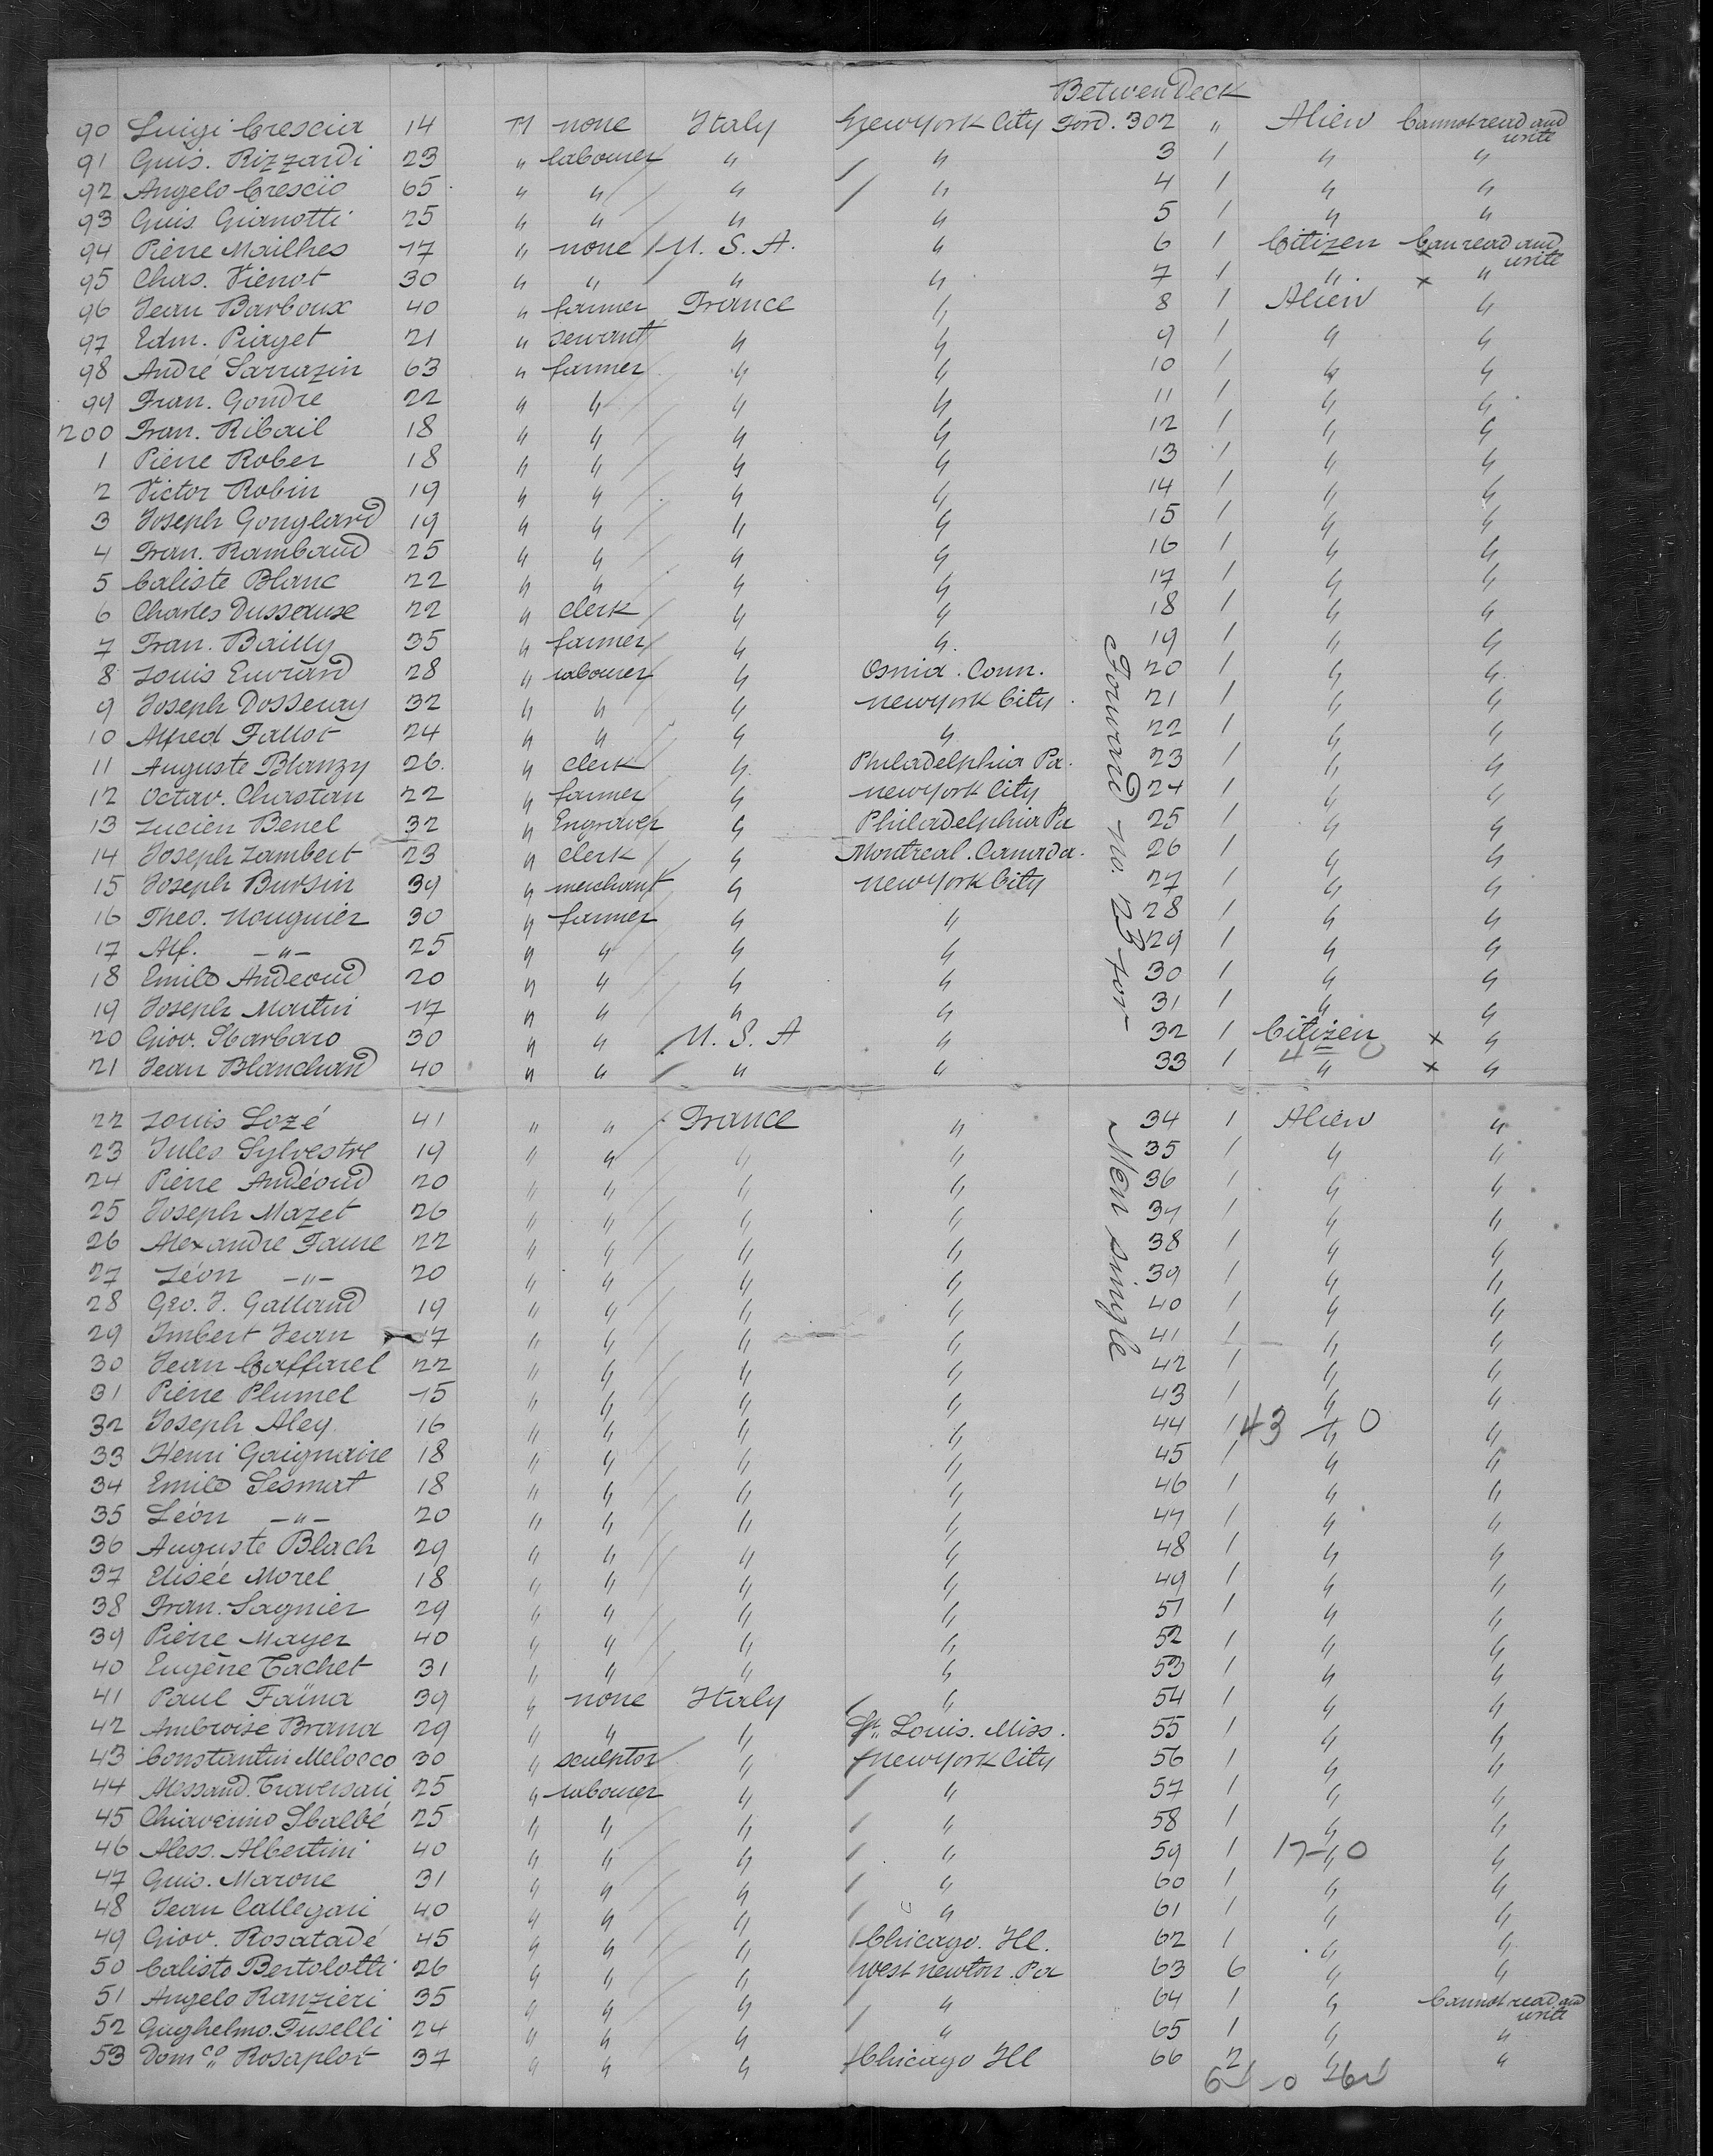 Betwen Deck
90 Luigi Crescia 14 M none Italy New York City Ford. 302 " Alien Cannot read and write
91 Guis. Rizzardi 23 " labourer " " 3 1 " "
92 Angelo Crescio 65 " " " " 4 1 " "
93 Guis. Gianotti 25 " " " " 5 1 " "
94 Pierre Mailhes 17 " none U. S. A. " 6 1 Citizen Can read and write
95 Chas. Vienot 30 " " " " 7 1 " x "
96 Jean Barboux 40 " farmer France " 8 1 Alien "
97 Edm. Piaget 21 " servant " " 9 1 " "
98 André Sarrazin 63 " farmer " " 10 1 " "
99 Fran. Gondre 22 " " " " 11 1 " "
200 Fran. Ribail 18 " " " " 12 1 " "
1 Pierre Rober 18 " " " " 13 1 " "
2 Victor Robin 19 " " " " 14 1 " "
3 Joseph Gonglard 19 " " " " 15 1 " "
4 Fran. Rambaud 25 " " " " 16 1 " "
5 Caliste Blanc 22 " " " " 17 1 " "
6 Charles Dusseaux 22 " clerk " " 18 1 " "
7 Fran. Bailly 35 " farmer " " 19 1 " "
8 Louis Euvrard 28 " labourer " Osnia. Conn. 20 1 " "
9 Joseph Dosseray 32 " " " New York City 21 1 " "
10 Alfred Fallot 24 " " " " 22 1 " "
11 Auguste Blanzy 26 " clerk " Philadelphia Pa. 23 1 " "
12 Octav. Chastan 22 " farmer " New York City 24 1 " "
13 Lucien Benel 32 " Engraver " Philadelphia Pa 25 1 " "
14 Joseph Lambert 23 " clerk " Montreal. Canada. 26 1 " "
15 Joseph Bursin 39 " merchant " New York City 27 1 " "
16 Theo. Nouguier 30 " farmer " " 28 1 " "
17 Alf. -"- 25 " " " " 29 1 " "
18 Emile Andeoud 20 " " " " 30 1 " "
19 Joseph Martin 17 " " " " 31 1 " "
20 Giov. Sbarbaro 30 " " U. S. A " 32 1 Citizen x "
21 Jean Blanchard 40 " " " " 33 1 " x "
Forward no. 23 for
22 Louis Lozé 41 " " France " 34 1 Alien "
23 Jules Sylvestre 19 " " " " 35 1 " "
24 Pierre Andéoud 20 " " " " 36 1 " "
25 Joseph Mazet 26 " " " " 37 1 " "
26 Alexandre Faure 22 " " " " 38 1 " "
27 Léon -"- 20 " " " " 39 1 " "
28 Geo. J. Galland 19 " " " " 40 1 " "
29 Imbert Jean 17 " " " " 41 1 " "
30 Jean Caffarel 22 " " " " 42 1 " "
Men single
31 Pierre Plumel 15 " " " " 43 1 " "
32 Joseph Aley 16 " " " " 44 1 43 - 0 " "
33 Henri Gaignaire 18 " " " " 45 1 " "
34 Emile Lesmat 18 " " " " 46 1 " "
35 Léon -"- 20 " " " " 47 1 " "
36 Auguste Blach 29 " " " " 48 1 " "
37 Elisée Morel 18 " " " " 49 1 " "
38 Fran. Sagnier 29 " " " " 51 1 " "
39 Pierre Mayer 40 " " " " 52 1 " "
40 Eugène Cachet 31 " " " " 53 1 " "
41 Paul Faïna 39 " none Italy " 54 1 " "
42 Ambroise Brana 29 " " " St. Louis. Miss. 55 1 " "
43 Constantin Melocco 30 " sculptor " New York City 56 1 " "
44 Alessand. Traversari 25 " labourer " " 57 1 " "
45 Chiaverino Sbalbé 25 " " " " 58 1 " "
46 Aless. Albertini 40 " " " " 59 1 17-0 " "
47 Guis. Marone 31 " " " " 60 1 " "
48 Jean Callegari 40 " " " " 61 1 " "
49 Giov. Rosatadé 45 " " " Chicago. Ill. 62 1 " "
50 Calisto Bertolotti 26 " " " West Newton. Pa 63 6 " "
51 Angelo Ranzieri 35 " " " " 64 1 " Cannot read and write
52 Gughelmo. Fuselli 24 " " " " 65 1 " "
53 Dom.co Rosaplot 37 " " " Chicago Ill 66 2 " "